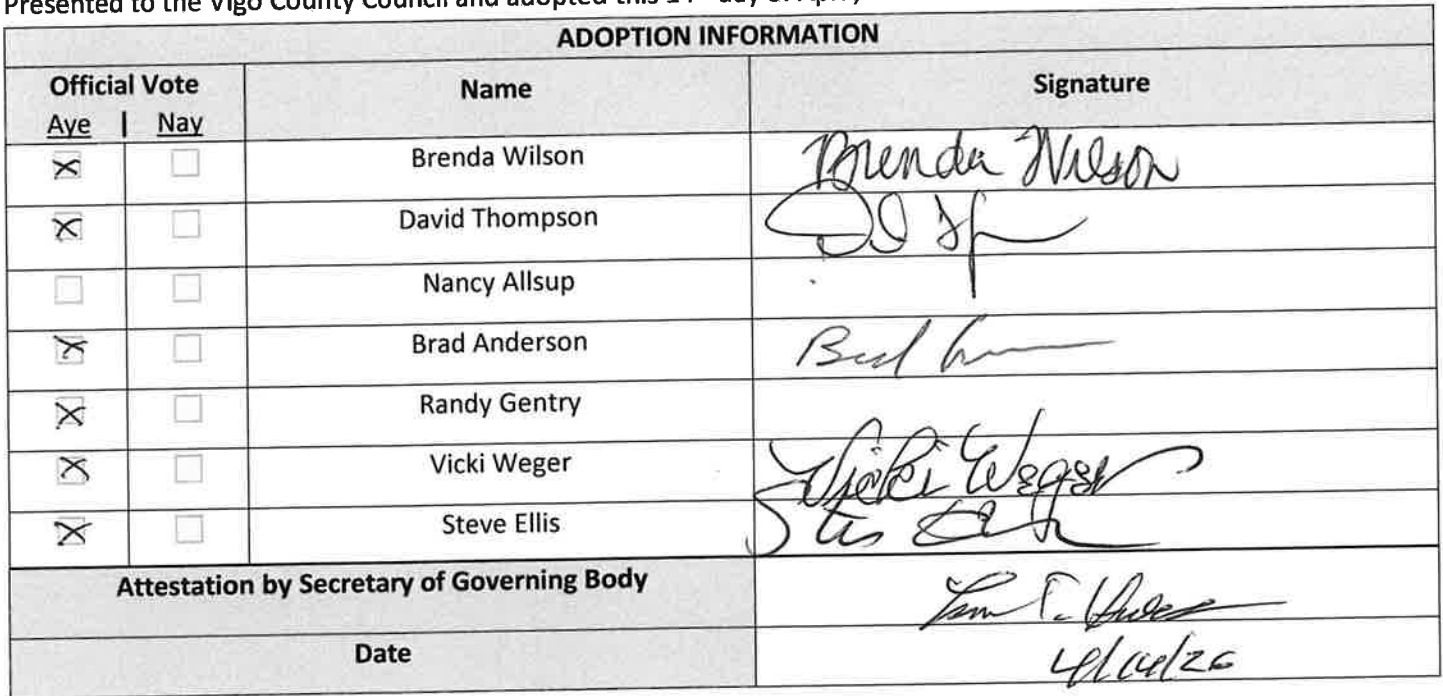 Presented to the Vigo County Council and adopted this 14th day of April
ADOPTION INFORMATION
Official Vote Name Signature
Aye | Nay
Brenda Wilson Brenda Wilson
David Thompson
Nancy Allsup
Brad Anderson Brad
Randy Gentry
Vicki Weger Vicki Weger
Steve Ellis
Attestation by Secretary of Governing Body
Date 4/14/26